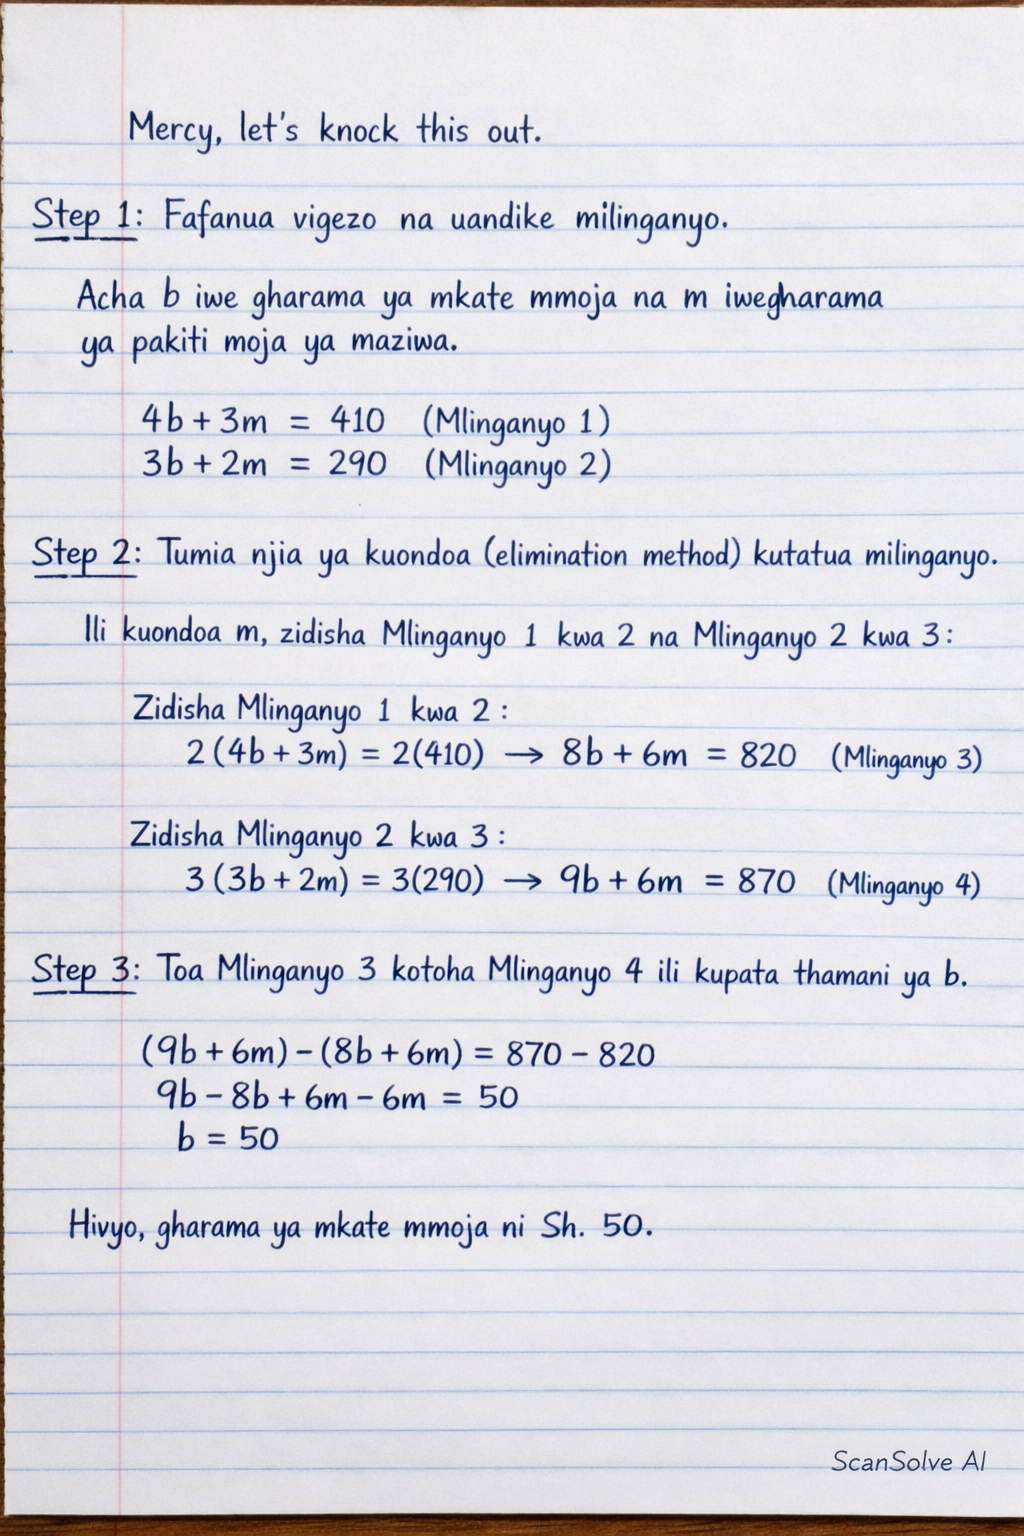 Mercy, let's knock this out.
Step 1: Fafanua vigezo na uandike milinganyo.
Acha b iwe gharama ya mkate mmoja na m iwegharama
ya pakiti moja ya maziwa.
4b + 3m = 410 (Mlinganyo 1)
3b + 2m = 290 (Mlinganyo 2)
Step 2: Tumia njia ya kuondoa (elimination method) kutatua milinganyo.
Ili kuondoa m, zidisha Mlinganyo 1 kwa 2 na Mlinganyo 2 kwa 3:
Zidisha Mlinganyo 1 kwa 2:
2(4b + 3m) = 2(410) → 8b + 6m = 820 (Mlinganyo 3)
Zidisha Mlinganyo 2 kwa 3:
3(3b + 2m) = 3(290) → 9b + 6m = 870 (Mlinganyo 4)
Step 3: Toa Mlinganyo 3 kotoha Mlinganyo 4 ili kupata thamani ya b.
(9b + 6m) - (8b + 6m) = 870 - 820
9b - 8b + 6m - 6m = 50
b = 50
Hivyo, gharama ya mkate mmoja ni Sh. 50.
ScanSolve AI